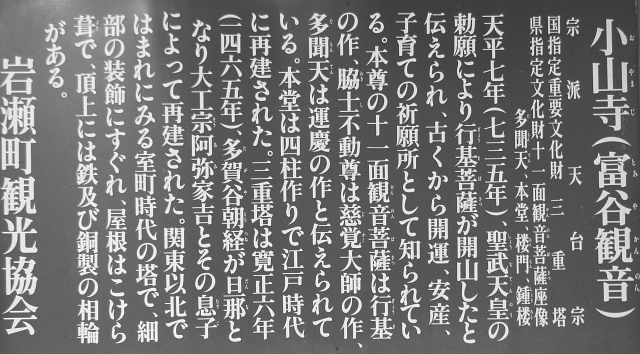 小山寺(富谷観音)
宗派 天台宗
国指定重要文化財 三重塔
県指定文化財 十一面観音菩薩座像
多聞天、本堂 楼門、鍾楼
天平七年(七三五年) 聖武天皇の
勅願により行基菩薩が開山したと
伝えられ、古くから開運、安産、
子育ての祈願所として知られてい
る。本尊の十一面観音菩薩は行基
の作、脇士不動尊は慈覚大師の作、
多聞天は運慶の作と伝えられて
いる。本堂は四柱作りで江戸時代
に再建された。三重塔は寛正六年
(一四六五年)、多賀谷朝経が旦那と
なり大工宗阿弥家吉とその息子
によって再建された。関東以北で
はまれにみる室町時代の塔で、細
部の装飾にすぐれ、屋根はこけら
葺で、頂上には鉄及び銅製の相輪
がある。
岩瀬町観光協会